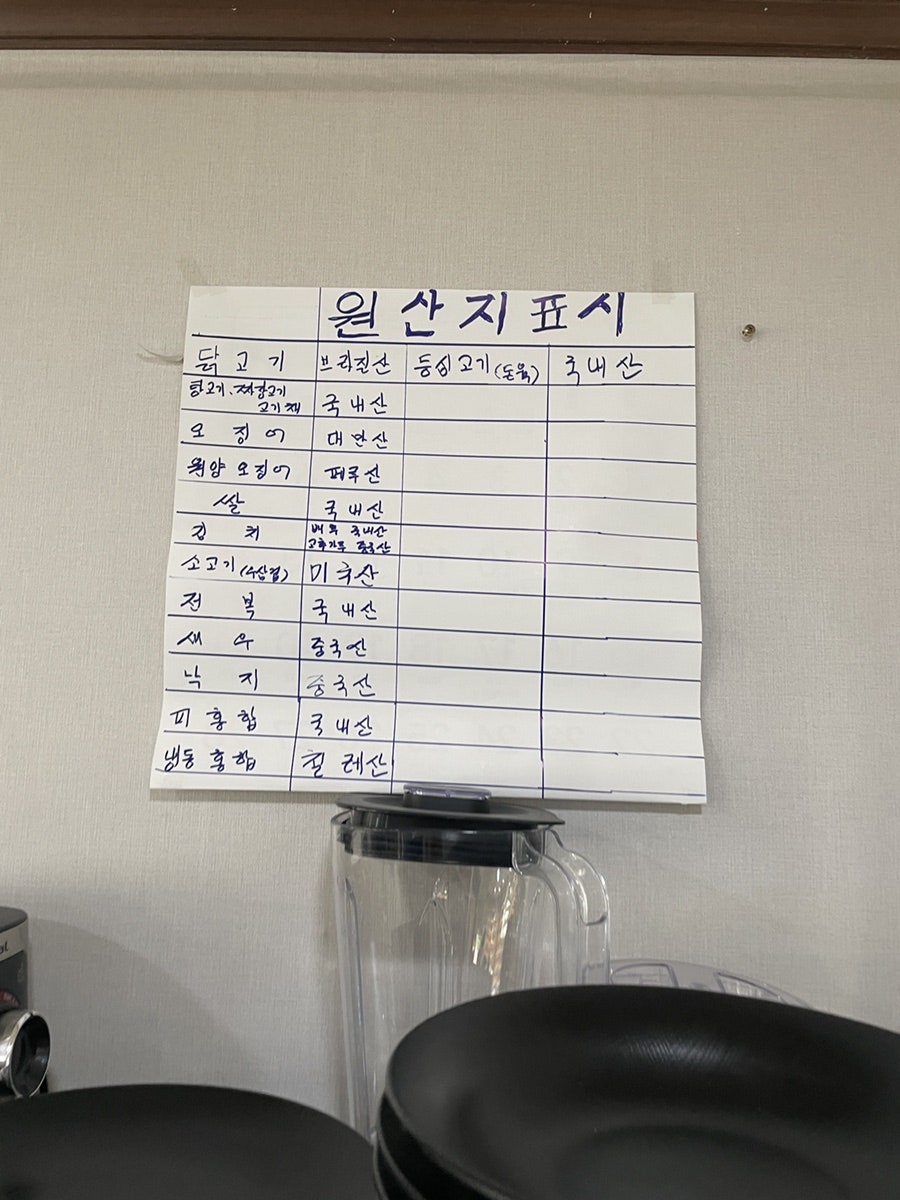 원산지표시
닭고기 브라질산 등심고기(돈육) 국내산
탕고기, 짜장고기
고기채 국내산
오징어 대만산
원양오징어 페루산
쌀 국내산
김치 배추 국내산
고추가루 중국산
소고기(우삼겹) 미국산
전복 국내산
새우 중국산
낙지 중국산
피홍합 국내산
냉동홍합 칠레산